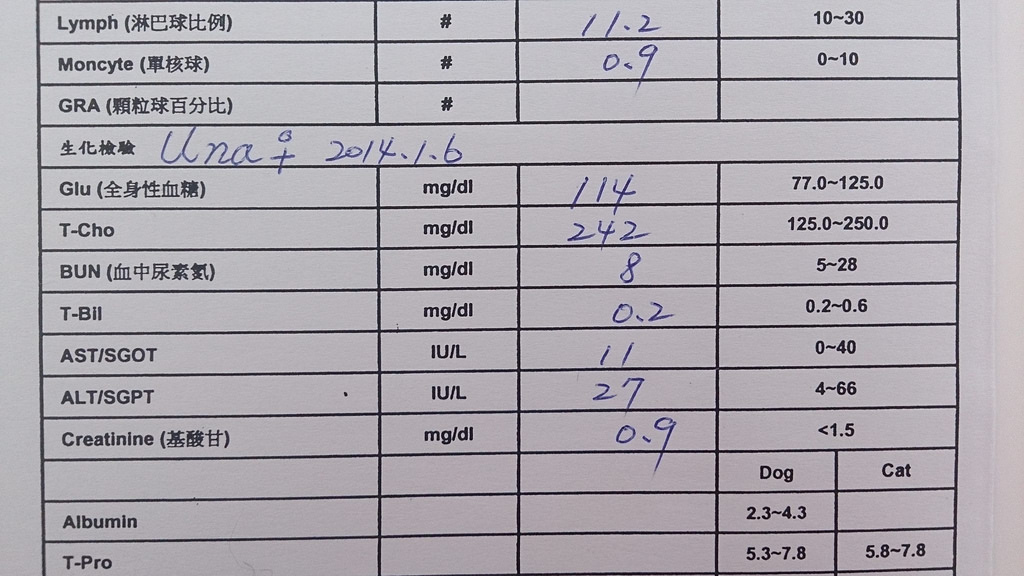 Lymph (淋巴球比例) # 11.2 10~30
Moncyte (單核球) # 0.9 0~10
GRA (顆粒球百分比) #
生化檢驗 Una ♀ 2014.1.6
Glu (全身性血糖) mg/dl 114 77.0~125.0
T-Cho mg/dl 242 125.0~250.0
BUN (血中尿素氮) mg/dl 8 5~28
T-Bil mg/dl 0.2 0.2~0.6
AST/SGOT IU/L 11 0~40
ALT/SGPT IU/L 27 4~66
Creatinine (基酸甘) mg/dl 0.9 <1.5
Dog Cat
Albumin 2.3~4.3
T-Pro 5.3~7.8 5.8~7.8